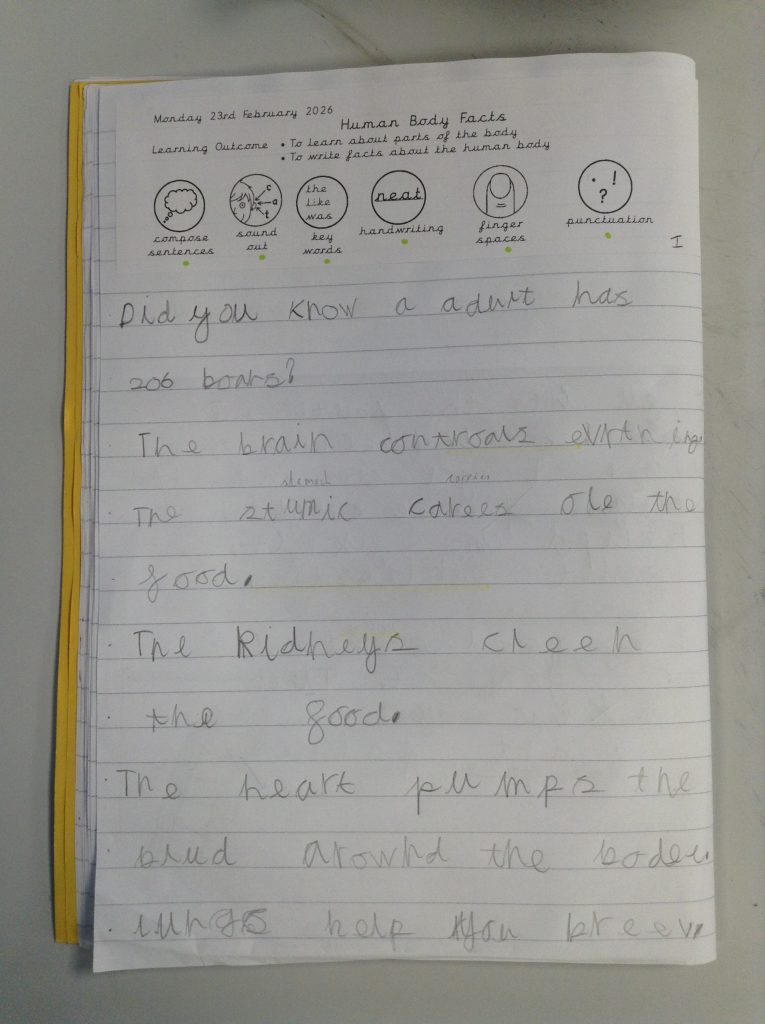 Monday 23rd February 2026
Human Body Facts
Learning Outcome • To learn about parts of the body
• To write facts about the human body
c
a
t
the
like
was
neat
. !
?
compose
sentences
sound
out
key
words
handwriting
finger
spaces
punctuation
I
Did you know a adult has
206 boans?
The brain controals evrthing
stomach carries
The stumic carees ole the
food.
The kidneys cleen
the food.
The heart pumps the
blud arownd the bodey.
lungs help you breev